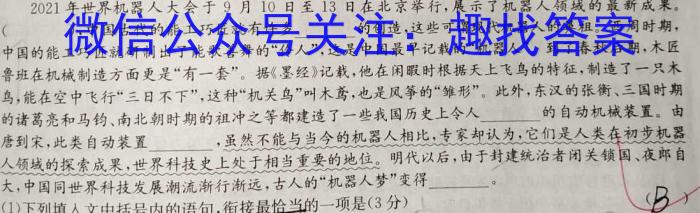 2021年世界机器人大会于9月10日至13日在北京举行,展示了机器人领域的最新成果。
微信公众号关注:趣找答案
鲁班在机械制造方面更是“有一套”。据《墨经》记载,他在闲暇时根据天上飞鸟的特征,制造了一只木
鸟,能在空中飞行“三日不下”,这种“机关鸟”叫木鸢,也是风筝的“雏形”。此外,东汉的张衡、三国时期
的诸葛亮和马钧、南北朝时期的祖冲之等都建造了一些我国历史上令人________的自动机械装置。由
唐到宋,此类自动装置________,虽然不能与当今的机器人相比,专家却认为,它们是人类在初步机器
人领域的探索成果,世界科技史上处于相当重要的地位。明代以后,由于封建统治者闭关锁国、夜郎自
大,中国同世界科技发展潮流渐行渐远,古人的“机器人梦”变得________。
(1)下列填入文中括号内的语句,衔接最恰当的一项是(3分)
(B)